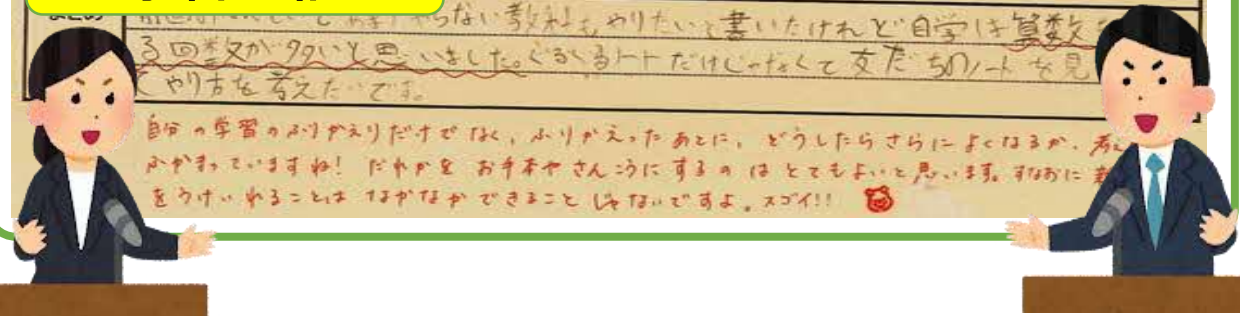 らない教科も、やりたいと書いたけれど自学は算数
る回数が多いと思いました。ぐるぐるノートだけじゃなくて友だちのノートを見
てやり方を考えたいです。
自分の学習のふりかえりだけでなく、ふりかえったあとに、どうしたらさらによくなるか、考え
ふかまっていますね! だれかをお手本やさんこうにするのはとてもよいと思います。すなおに
をうけいれることはなかなかできることじゃないですよ。スゴイ!!